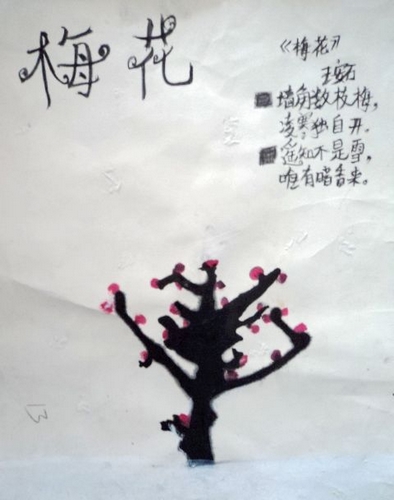 梅花
《梅花》
王安石
墙角数枝梅，
凌寒独自开.
遥知不是雪，
唯有暗香来。